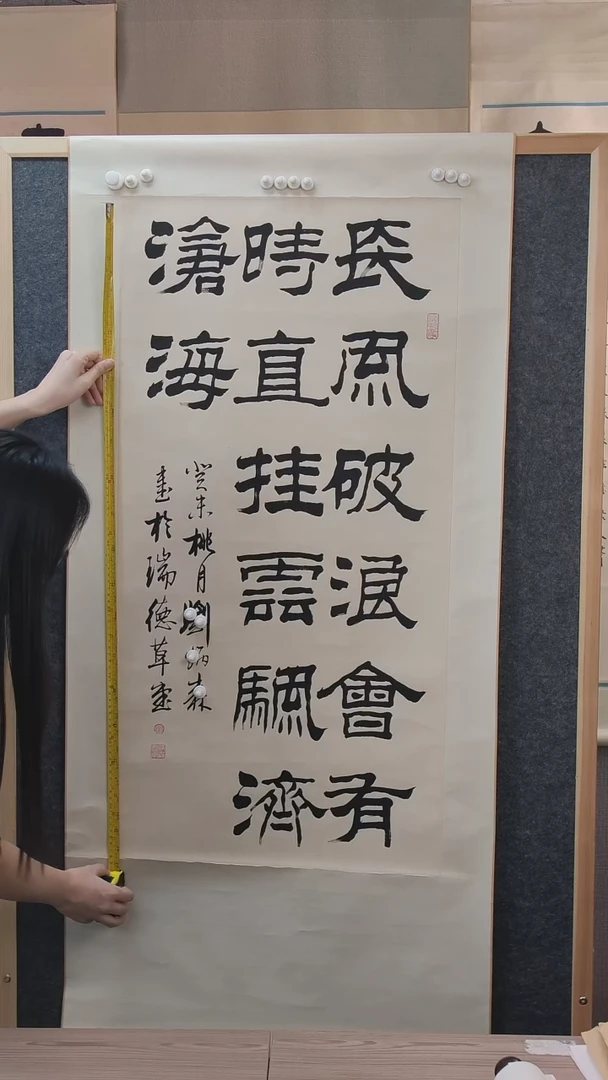 長風破浪會有
時直挂雲颿濟
滄海
癸未桃月劉炳森
書於瑞德草堂